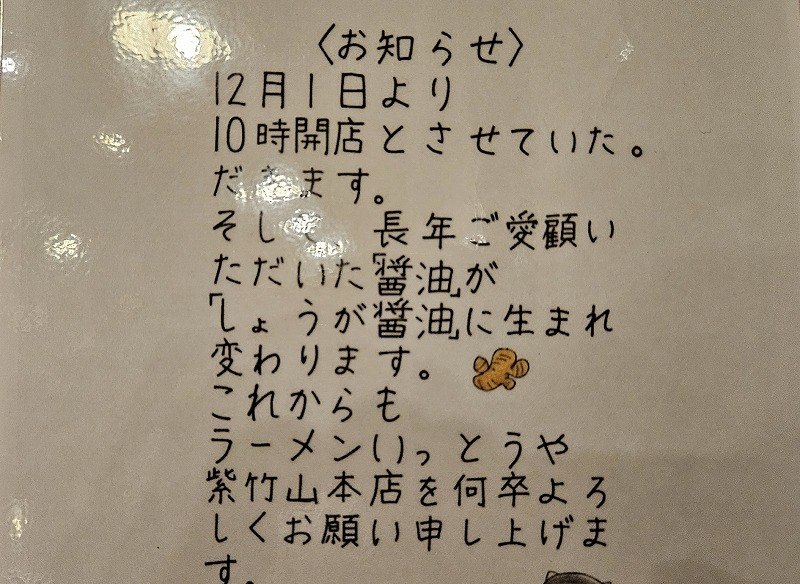 〈お知らせ〉
12月1日より
10時開店とさせていた。
だきます。
そして、長年ご愛顧い
ただいた「醤油」が
「しょうが醤油」に生まれ
変わります。
これからも
ラーメンいっとうや
紫竹山本店を何卒よろ
しくお願い申し上げま
す。